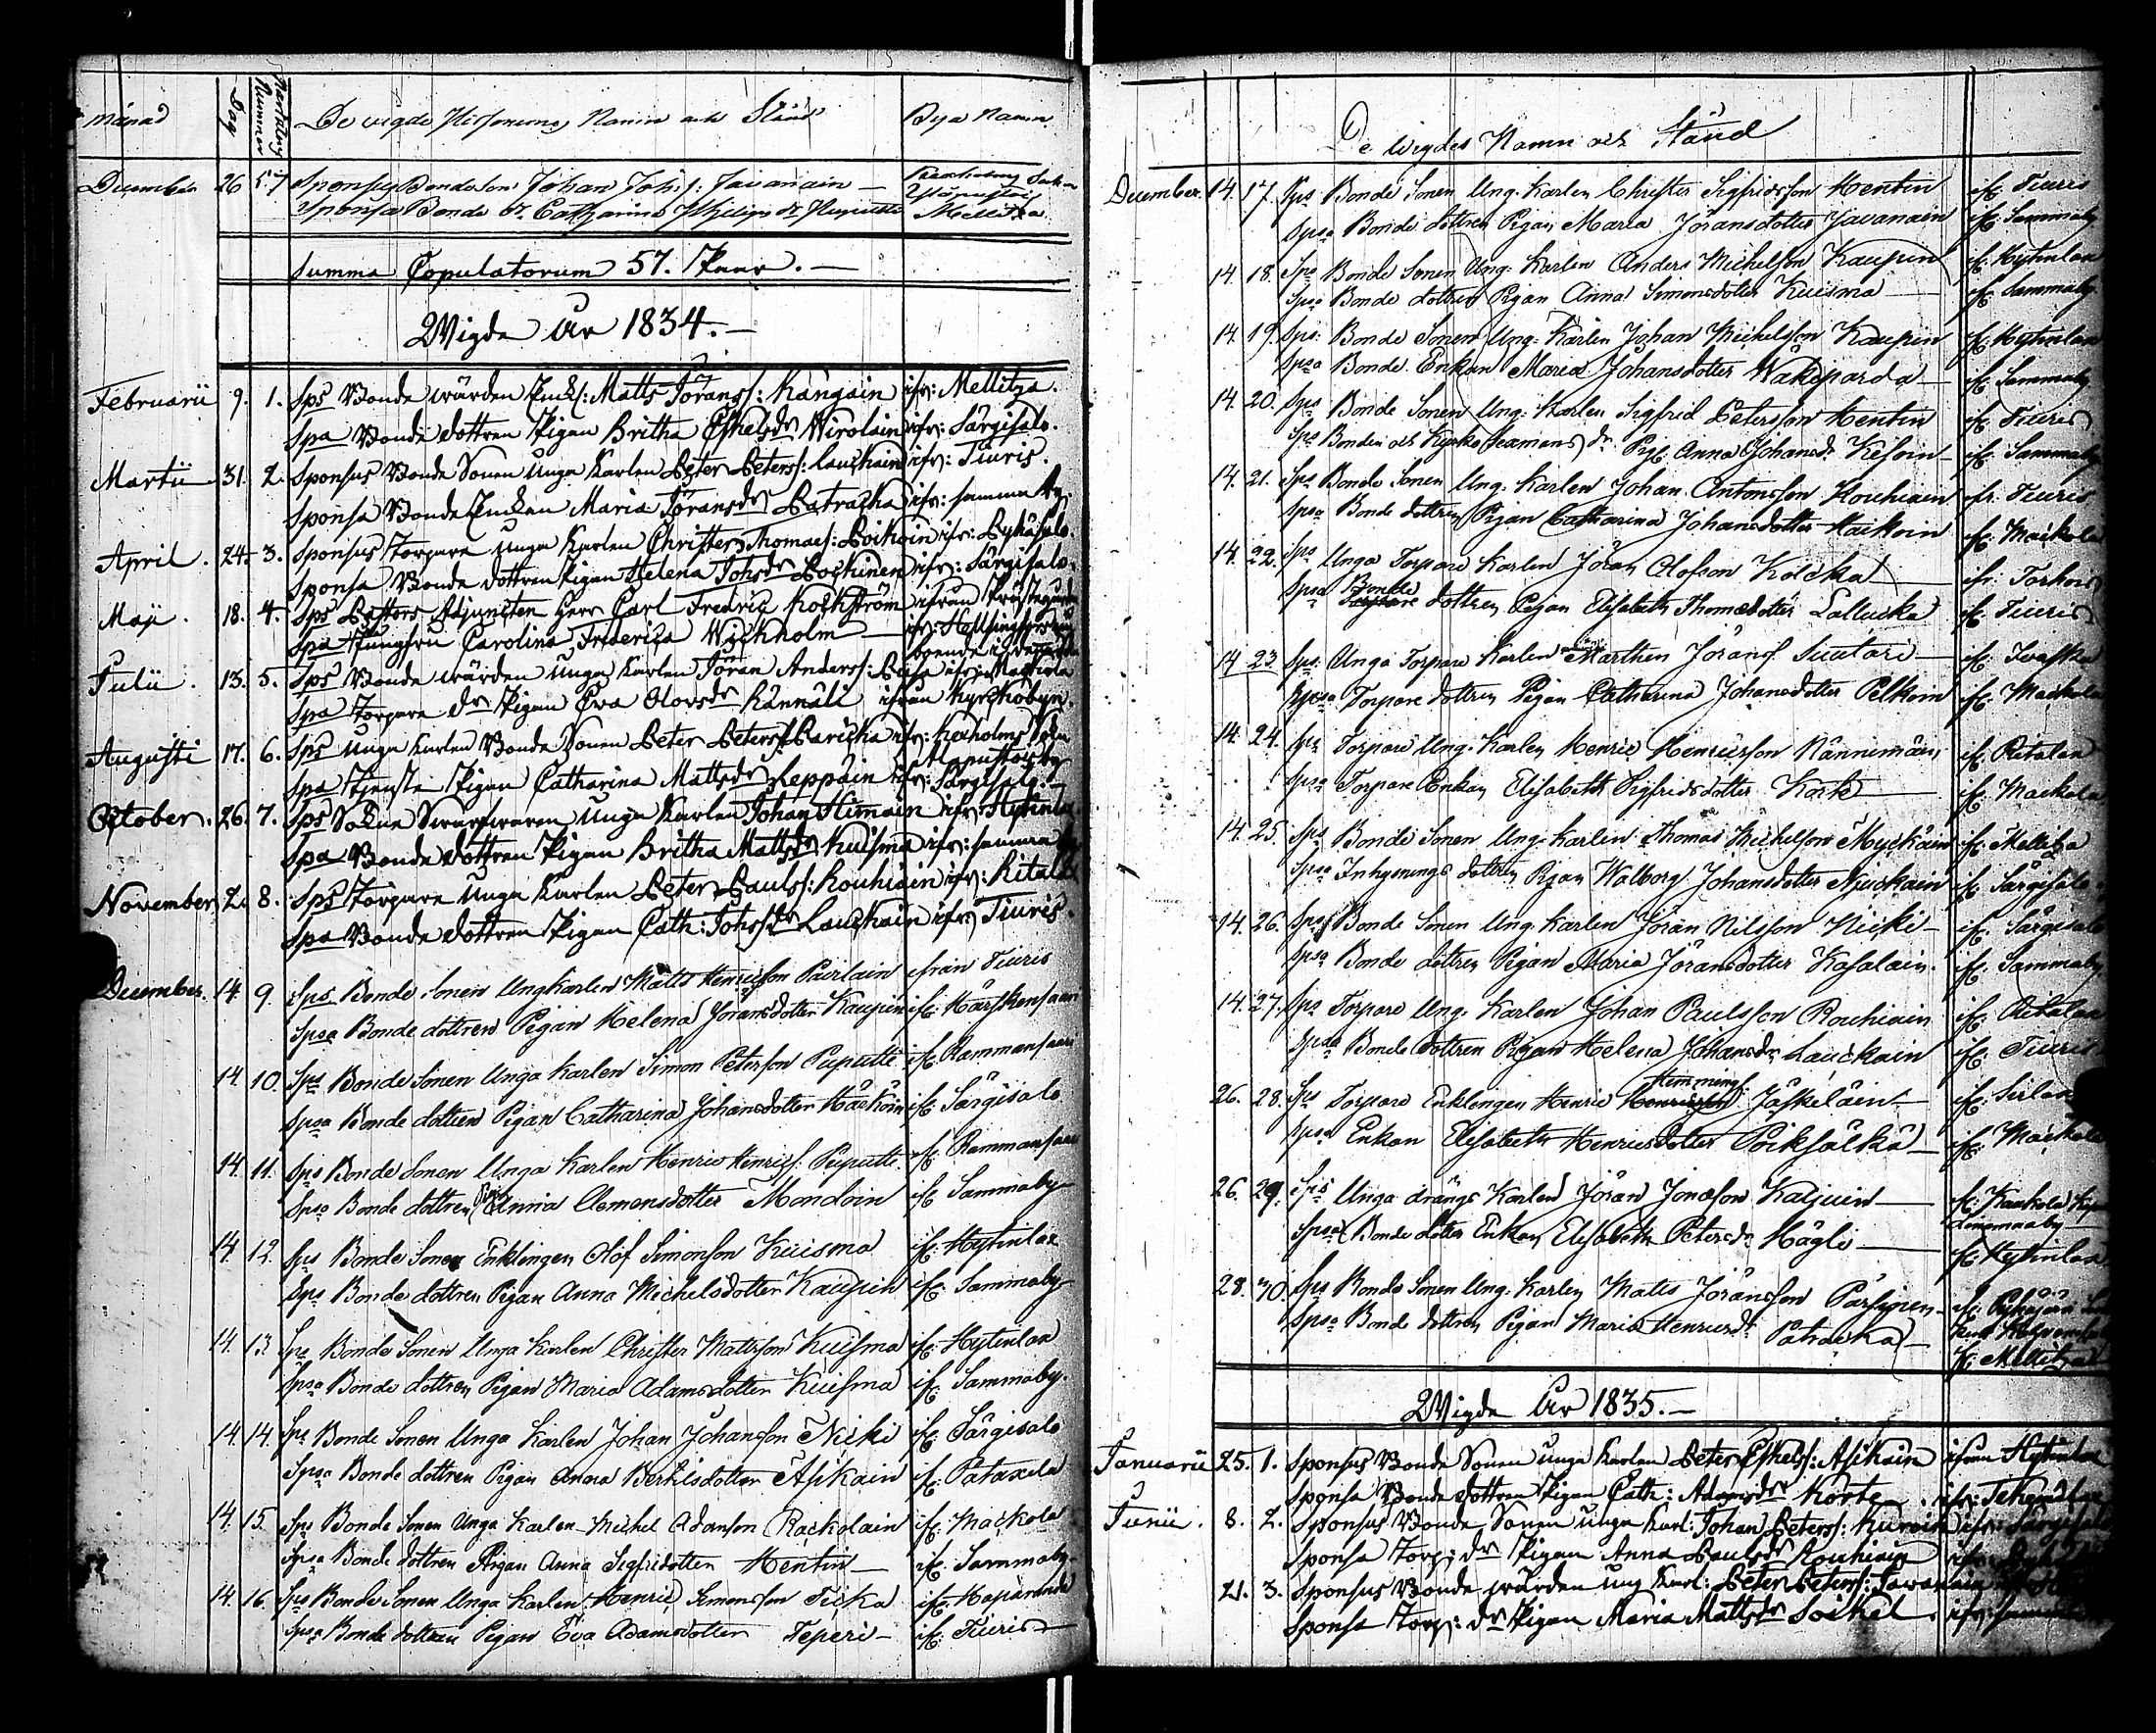 månad Dag Nummer De vigde Personernas Namn och Stånd Bya Namn
December 26 57 Sponsus Bondeson Johan Joh:s: Javanain
Sponsa Bonde dr. Catharina Philips dr Mellitza
Summa Copulatorum 57. Paar.
Wigde År 1834.
Februarii 9. 1. Sps Bonde wärden Enkl: Matts Jöranss: Kangain ifr: Mellitza.
Spa Bonde dottren Pigan Britha Eskelsdr Wirolain ifr: Särgisalo.
Martii 31. 2. Sponsus Bonde Sonen Unga Karlen Peter Peterss: Lauckain ifr: Tiuris.
Sponsa Bonde Enkan Maria Jöransdr Patracka ifr: samma by
April. 24. 3. Sponsus Torpare unga Karlen Christer Thomaes: Poikoin ifr: Pyhäsalo.
Sponsa Bonde dottren Pigan Helena Johsdr Pockinen ifr: Särgisalo.
Maji. 18. 4. Sps Pastors Adjuncten Herr Carl Fredric Kockström ifrån Prästegården
Spa Jungfru Carolina Frederica Wickholm ifr: Helsingfors
boende i
Julii. 13. 5. Sps Bonde wärden Unga Karlen Jöran Anderss: ifr:
Spa Torpare dr Pigan Eva Olovsdr Kännäli ifrån Kyrckobyn.
Augusti 17. 6. Sps Unga Karlen Bonde Sonen Peter Peterss: Paricka ifr: Kexholms Sokn
Spa Tjenste Pigan Catharina Mattsdr Leppäin ifr: Särgisalo.
October. 26. 7. Sps Sokne Swarfwaren Unga Karlen Johan Himain ifr: Hytinlax
Spa Bonde dottren Pigan Britha Mattsdr Kuisma ifr: samma by
November 2. 8. Sps Torpare Unga Karlen Peter Paulss: Rouhiain ifr: Ritalax
Spa Bonde dottren Pigan Cath: Johsdr Lauckain ifr: Tiuris.
December. 14. 9. Sps Bonde Sonen Ungkarlen Matts Henricsson Pairlain ifrån Tiuris
Spsa Bonde dottren Pigan Helena Joransdotter Kaupin if: Kärskensaari
14. 10. Sps Bonde Sonen Unga Karlen Simon Petersson Puputti if: Rammansaari
Spsa Bonde dottren Pigan Catharina Johansdotter Häköin if: Särgisalo
14. 11. Sps Bonde Sonen Unga Karlen Henric Henrics: Puputti. if: Rammansaari
Spsa Bonde dottren Pigan Anna Clemensdotter Mondoin if: Sammaby
14. 12. Sps Bonde Sonen Enklingen Olof Simonsson Kuisma if: Hytinlax
Spsa Bonde dottren Pigan Anna Michelsdotter Kaupin if: Sammaby
14. 13. Sps Bonde Sonen Unga Karlen Christer Mattsson Kuisma if: Hytinlax
Spsa Bonde dottren Pigan Maria Adamsdotter Kuisma if: Sammaby.
14. 14. Sps Bonde Sonen Unga Karlen Johan Johansson Nicki if: Särgisalo
Spsa Bonde dottren Pigan Anna Bertilsdotter Asikain if: Pataxela
14. 15. Sps Bonde Sonen Unga Karlen Michel Adamson Räckolain if: Mackola
Spsa Bonde dottren Pigan Anna Sigfridotter Hentin if: Sammaby.
14. 16. Sps Bonde Sonen Unga Karlen Henric Simonsson Ticka if: Haparanda
Spsa Bonde dottren Pigan Eva Adamsdotter Teperi if: Tiuris
De wigdes Namn och Stånd
December. 14. 17. Sps Bonde Sonen Ung. Karlen Christer Sigfridsson Hentin if: Tiuris
Spsa Bonde dottren Pigan Maria Jöransdotter Javanain if: Sammaby
14. 18. Sps Bonde Sonen Ung. Karlen Anders Michelsson Kaupin if: Hytinlax
Spsa Bonde dottren Pigan Anna Simonsdotter Kuisma if: Sammaby
14. 19. Sps: Bonde Sonen Ung. Karlen Johan Michelsson Kaupin if: Hytinlax
Spsa Bonde Enkan Maria Johansdotter Wäkiparda if: Sammaby
14. 20. Sps Bonde Sonen Ung. Karlen Sigfrid Petersson Hentin if: Tiuris
Sps Bonden och Kyrko dr. Pig: Anna Johansdr Kesoin if: Sammaby
14. 21. Sps Bonde Sonen Ung. Karlen Johan Antonsson Rouhiain fr. Tiuris
Spsa Bonde dottren Pigan Catharina Johansdotter Häikoin if: Mackola
14. 22. Sps Unga Torpare Karlen Jöran Olofson Kolcka ifr: Torhois
Spsa Bonde dottren Pigan Elisabeth Thomædotter Lallucka if: Tiuris
14 23. Sps: Unga Torpare Karlen Marthen Jörans: Suutari if:
Spsa Torpare dottren Pigan Catharina Johansdotter Pelkoin if: Mackola
14. 24. Sps Torpare Ung. Karlen Henric Henricsson Nännimäin if: Ritalax
Spsa Torpare Enkan Elisabeth Sigfridsdotter Korte if: Mackola
14. 25. Sps Bonde Sonen Ung. Karlen Thomas Michelson Myckäin if: Mellitza
Spsa Inhysings dottren Pigan Walborg Johansdotter Njuckain if: Särgisalo.
14. 26. Sps Bonde Sonen Ung. Karlen Jöran Nilsson Nicki if: Särgisalo
Spsa Bonde dottren Pigan Maria Jöransdotter Kasalain. if: Sammaby
14. 27. Sps Torpare Ung. Karlen Johan Paulsson Rouhiain if: Ritalax
Spsa Bonde dottren Pigan Helena Johansdr Lauckain if: Tiuris
26. 28. Sps Torpare Enklingen Henric Hemmings: Jäskeläin if: Sirlax
Spsa Enkan Elisabeth Henricsdotter Poiksälkä if: Mackola
26. 29. Sps Unga drängs Karlen Jöran Jonæson Kaljuin if: Kaukola
Spsa Bonde dotter Enkan Elisabeth Petersdr Hägli if: Hytinlax
28. 30. Sps Bonde Sonen Ung. Karlen Matts Jöransson Pärsinen if: Pyhäjärvi
Spsa Bonde dottren Pigan Maria Henricsdr Patracka
if: Mellitza
Wigde År 1835.
Januarii 25. 1. Sponsus Bonde Sonen unga Karlen Peter Eskels: Asikain ifrån Hytinlax
Sponsa Bonde dottren Pigan Cath: Adamsdr Korte ifr:
Junii. 8. 2. Sponsus Bonde Sonen unga Karl: Johan Peterss: Kuroin ifr: Särgisalo
Sponsa Torp: dr Pigan Anna Paulsdr Rouhiain
21. 3. Sponsus Bonde wärden ung Karl: Peter Peterss: Jawanain
Sponsa Torp: dr Pigan Maria Mattsdr Soikel ifr: samma